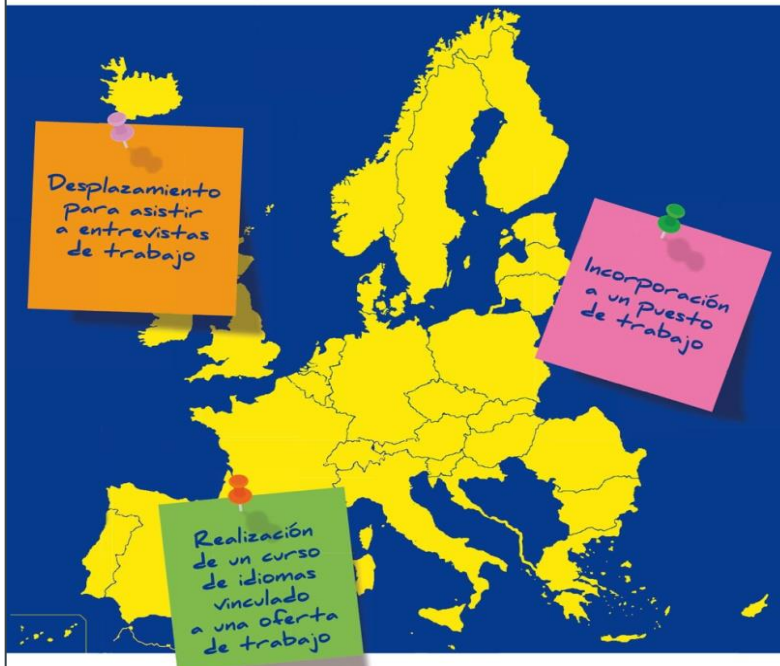 Desplazamiento
para asistir
a entrevistas
de trabajo
Incorporación
a un Puesto
de trabajo
Realización
de un curso
de idiomas
vinculado
a una oferta
de trabajo